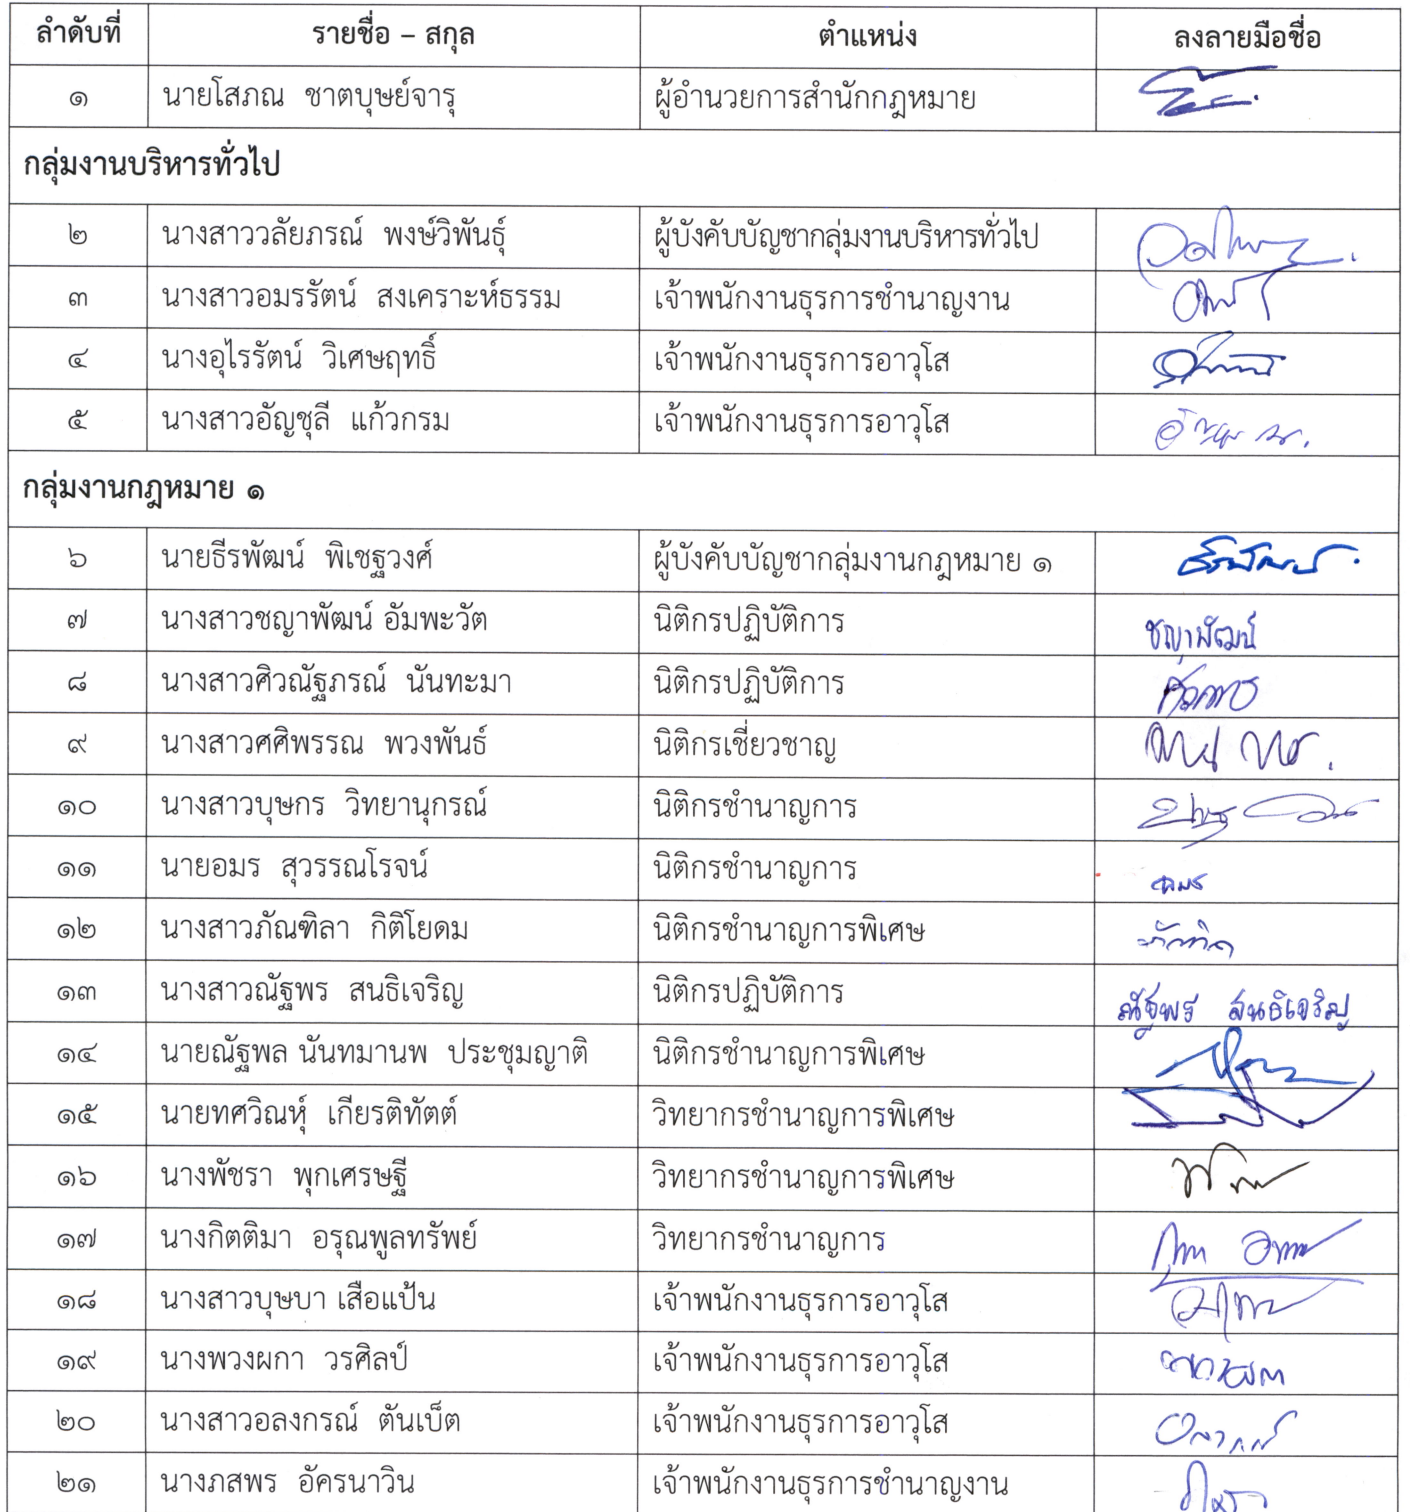 ลำดับที่ รายชื่อ – สกุล ตำแหน่ง ลงลายมือชื่อ
๑ นายโสภณ ชาตบุษย์จารุ ผู้อำนวยการสำนักกฎหมาย
กลุ่มงานบริหารทั่วไป
๒ นางสาววลัยภรณ์ พงษ์วิพันธุ์ ผู้บังคับบัญชากลุ่มงานบริหารทั่วไป
๓ นางสาวอมรรัตน์ สงเคราะห์ธรรม เจ้าพนักงานธุรการชำนาญงาน
๔ นางอุไรรัตน์ วิเศษฤทธิ์ เจ้าพนักงานธุรการอาวุโส
๕ นางสาวอัญชุลี แก้วกรม เจ้าพนักงานธุรการอาวุโส
กลุ่มงานกฎหมาย ๑
๖ นายธีรพัฒน์ พิเชฐวงศ์ ผู้บังคับบัญชากลุ่มงานกฎหมาย ๑ ธีรพัฒน์
๗ นางสาวชญาพัฒน์ อัมพะวัต นิติกรปฏิบัติการ ชญาพัฒน์
๘ นางสาวศิวณัฐภรณ์ นันทะมา นิติกรปฏิบัติการ
๙ นางสาวศศิพรรณ พวงพันธ์ นิติกรเชี่ยวชาญ
๑๐ นางสาวบุษกร วิทยานุกรณ์ นิติกรชำนาญการ
๑๑ นายอมร สุวรรณโรจน์ นิติกรชำนาญการ อมร
๑๒ นางสาวภัณฑิลา กิติโยดม นิติกรชำนาญการพิเศษ
๑๓ นางสาวณัฐพร สนธิเจริญ นิติกรปฏิบัติการ ณัฐพร สนธิเจริญ
๑๔ นายณัฐพล นันทมานพ ประชุมญาติ นิติกรชำนาญการพิเศษ
๑๕ นายทศวิณหุ์ เกียรติทัตต์ วิทยากรชำนาญการพิเศษ
๑๖ นางพัชรา พุกเศรษฐี วิทยากรชำนาญการพิเศษ
๑๗ นางกิตติมา อรุณพูลทรัพย์ วิทยากรชำนาญการ
๑๘ นางสาวบุษบา เสือแป้น เจ้าพนักงานธุรการอาวุโส
๑๙ นางพวงผกา วรศิลป์ เจ้าพนักงานธุรการอาวุโส
๒๐ นางสาวอลงกรณ์ ตันเบ็ต เจ้าพนักงานธุรการอาวุโส
๒๑ นางภสพร อัครนาวิน เจ้าพนักงานธุรการชำนาญงาน